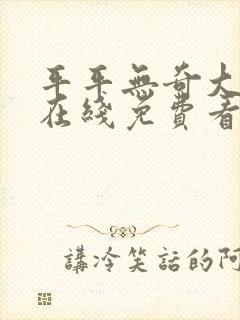 平平無奇大
在綫免費看
講冷笑話的阿